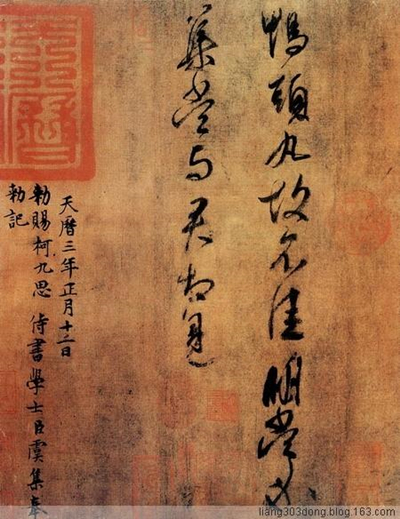 鴨頭丸故不佳明當必
集當与君相見
天曆三年正月十二日
勅賜柯九思侍書學士臣虞集奉
勅記
liang303dong.blog.163.com